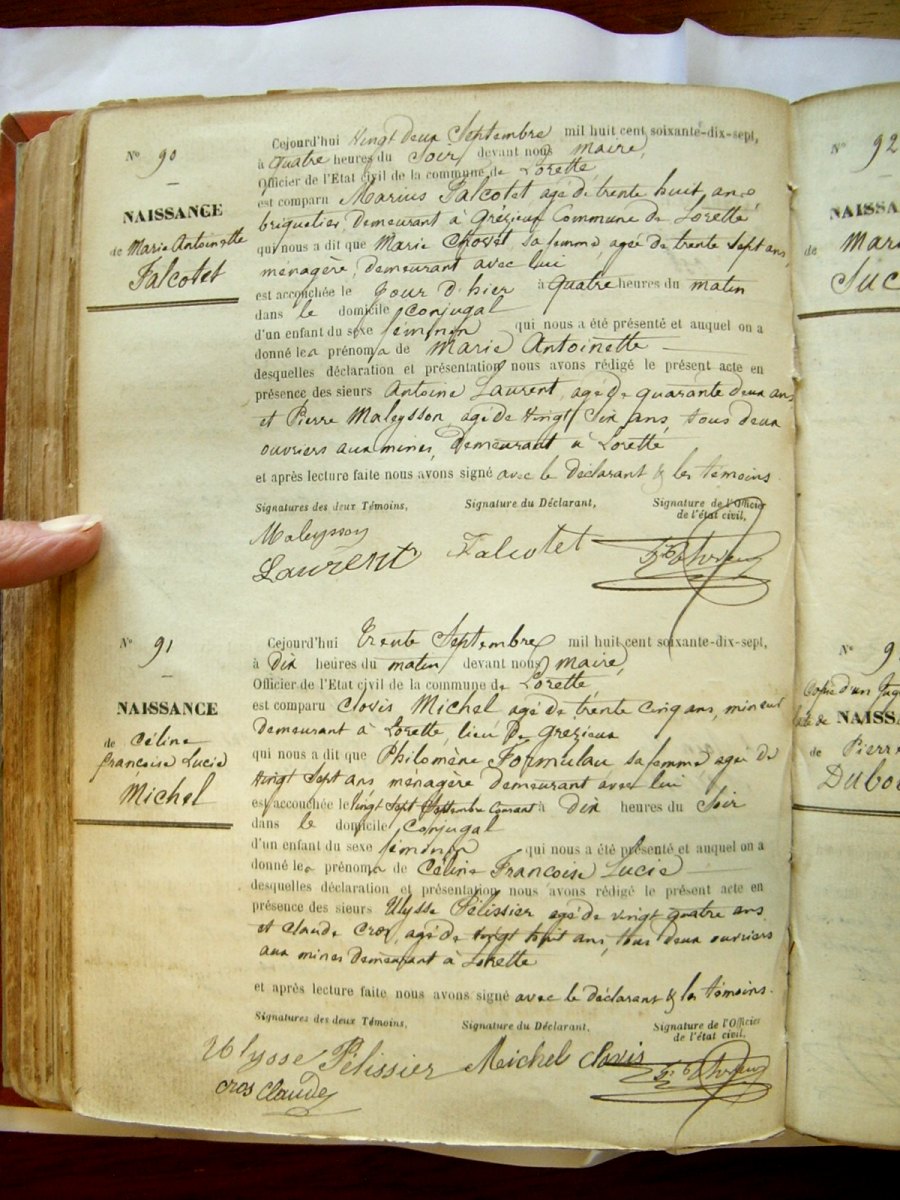 N° 90
NAISSANCE
de Marie Antoinette
Falcotet
Cejourd'hui vingt deux Septembre mil huit cent soixante-dix-sept,
à quatre heures du Soir devant nous maire,
Officier de l'Etat civil de la commune de Lorette
est comparu Marius Falcotet agé de trente huit ans
briquetier, demeurant à Grézieux Commune de Lorette
qui nous a dit que Marie Chovet, sa femme, agée de trente sept ans,
ménagère, demeurant avec lui
est accouchée le jour d'hier à quatre heures du matin
dans le domicile conjugal
d'un enfant du sexe féminin qui nous a été présenté et auquel on a
donné les prénoms de Marie Antoinette
desquelles déclaration et présentation nous avons rédigé le présent acte en
présence des sieurs Antoine Laurent, agé de quarante deux ans
et Pierre Maleysson agé de vingt six ans, tous deux
ouvriers aux mines, demeurant à Lorette
et après lecture faite nous avons signé avec le déclarant & les témoins.
Signatures des deux Témoins, Signature du Déclarant, Signature de l'Officier
de l'état civil,
Maleysson
Laurent Falcotet
N° 91
NAISSANCE
de Céline
françoise Lucie
Michel
Cejourd'hui trente Septembre mil huit cent soixante-dix-sept,
à dix heures du matin devant nous maire,
Officier de l'Etat civil de la commune de Lorette
est comparu Clovis Michel agé de trente cinq ans, mineur
demeurant à Lorette, lieu de Grezieux
qui nous a dit que Philomène Formulau sa femme agée de
vingt sept ans ménagère demeurant avec lui
est accouchée le vingt sept Septembre Courant à dix heures du Soir
dans le domicile conjugal
d'un enfant du sexe féminin qui nous a été présenté et auquel on a
donné les prénoms de Céline Francoise Lucie
desquelles déclaration et présentation nous avons rédigé le présent acte en
présence des sieurs Ulysse Pélissier agé de vingt quatre ans
et Claude Cros, agé de vingt huit ans, tous deux ouvriers
aux mines demeurant à Lorette
et après lecture faite nous avons signé avec le déclarant & les témoins.
Signatures des deux Témoins, Signature du Déclarant, Signature de l'Officier
de l'état civil,
Ulysse Pélissier Michel Clovis
Cros Claude
N° 92
NAISSA
de Mari
Suc
N° 9
Copie d'un Jug
de NAISSA
de Pierre
Dubo